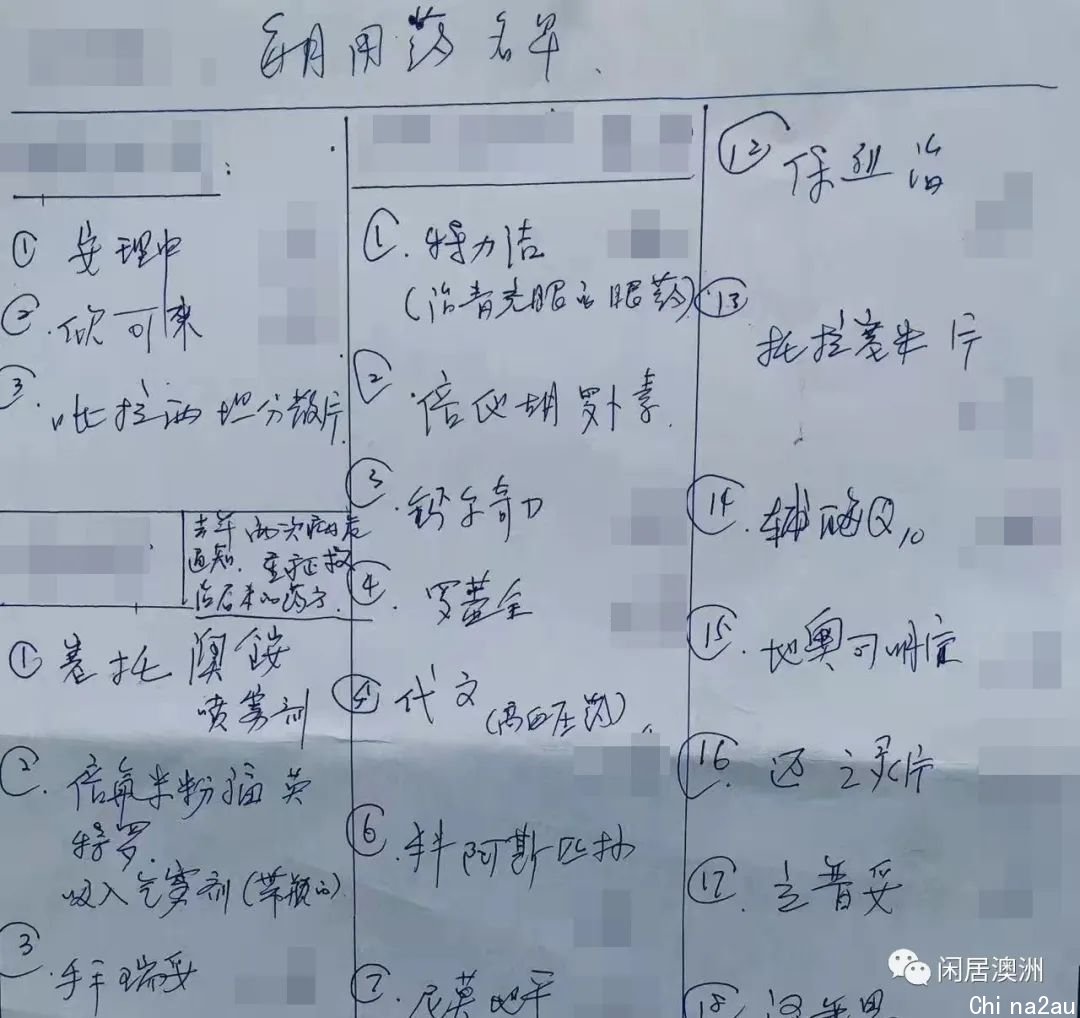 每月用药名单
① 安理申
② 欣可来
③ 吡拉西坦分散片
去年两次病发
通知，重症救
治后来的药方
① 塞托溴铵
喷雾剂
② 倍氯米松福莫
特罗
吸入气雾剂（带瓶的）
③ 瑞妥
① 特力洁
（治青光眼的眼药）
② 倍他胡萝卜素
③ 钙尔奇D
④ 罗盖全
代文（高血压药）
⑥ 拜阿斯匹林
⑦ 尼莫地平
⑫ 保列治
⑬
托拉塞米片
⑭ 辅酶Q10
⑮ 地奥可明定
⑯ 达之灵片
⑰ 立普妥
⑱
闲居澳洲
China2au